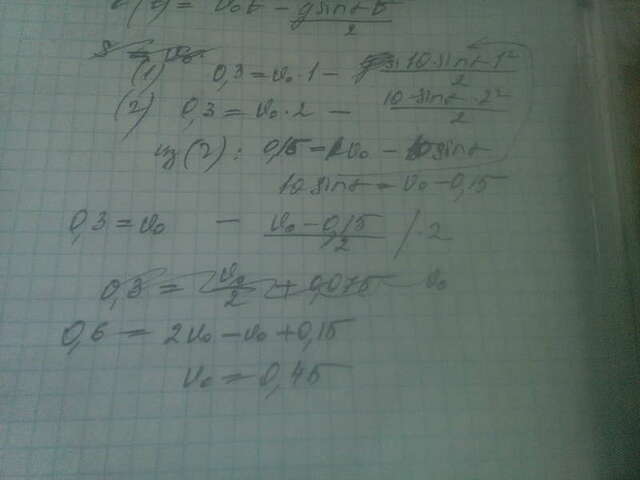 = v₀t − g sinα t²/2
(1) 0,3 = v₀·1 − 10·sinα·1²/2
(2) 0,3 = v₀·2 − 10·sinα·2²/2
из (2): 0,15 = v₀ − 10 sinα
10 sinα = v₀ − 0,15
0,3 = v₀ − (v₀ − 0,15)/2 /·2
0,3 = v₀/2 + 0,075 v₀
0,6 = 2v₀ − v₀ + 0,15
v₀ = 0,45